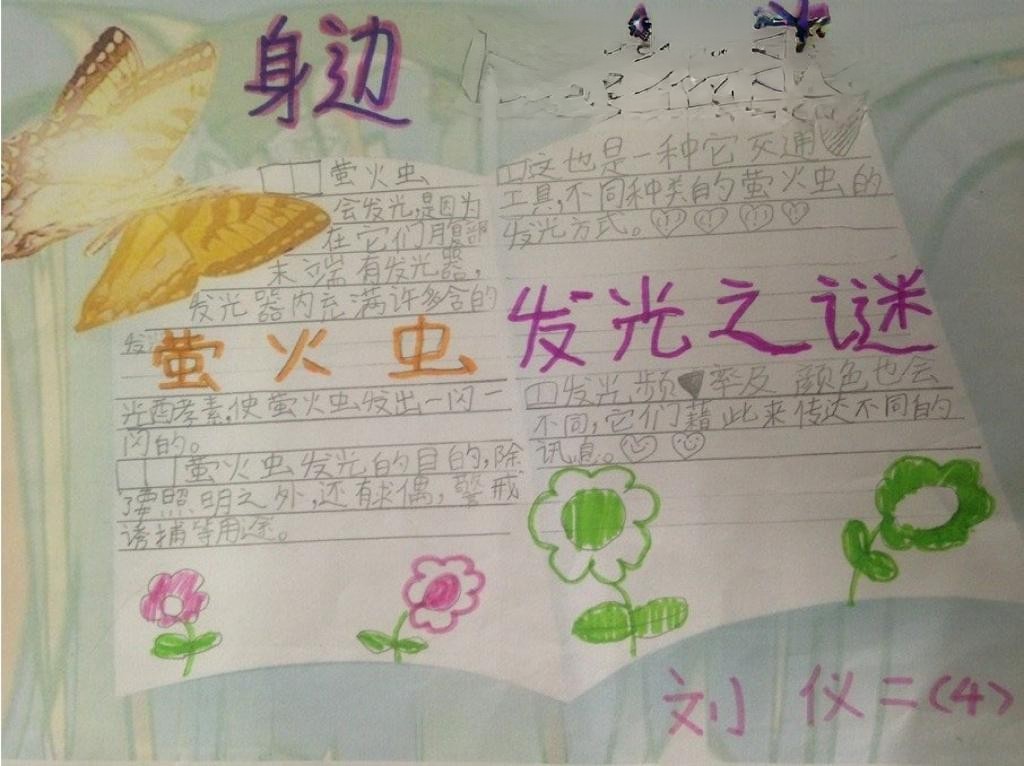 身边
萤火虫
会发光,是因为
在它们腹部
末端有发光器,
发光器内充满许多含的
发
萤火虫
光酉孝素,使萤火虫发出一闪一
闪的。
萤火虫发光的目的,除
了要照明之外,还有求偶,警戒
诱捕等用途。
这也是一种它交通
工具,不同种类自的萤火虫的
发光方式。
发光之谜
发光频率及颜色也会
不同,它们藉此来传达不同的
讯息。
刘仪二(4)